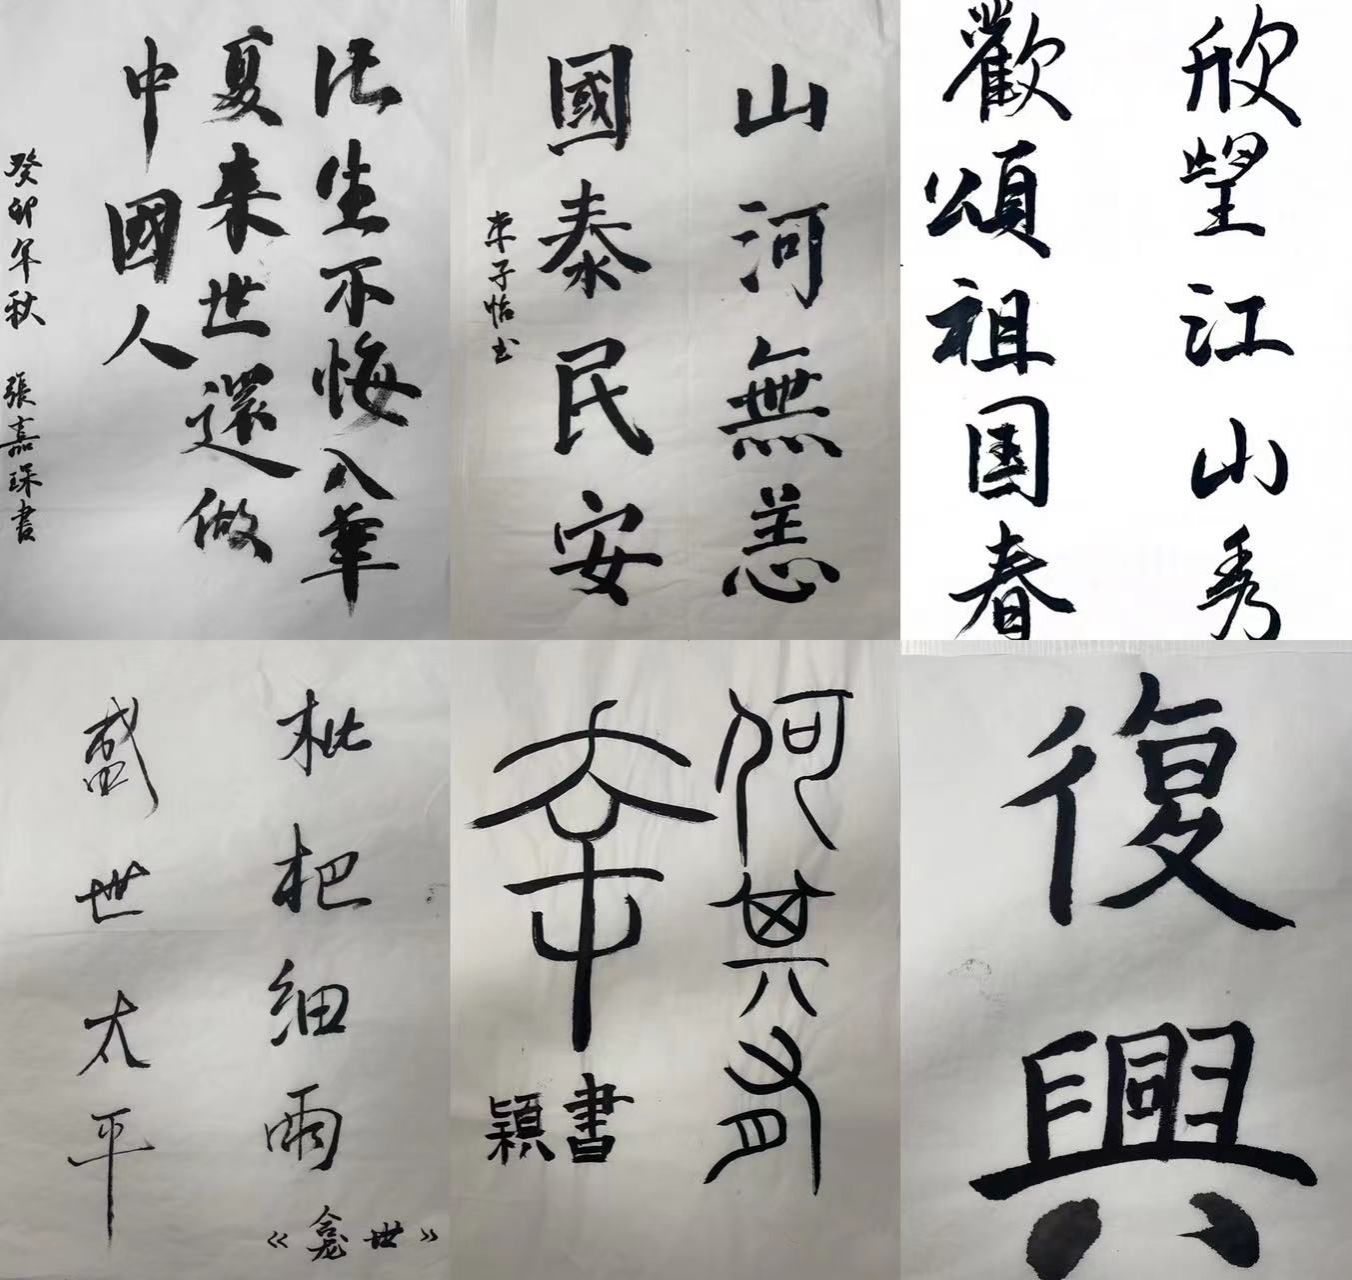 此生不悔入華
夏来世還做
中國人
癸卯年秋 張嘉琛書
山河無恙
國泰民安
李子怡书
欣望江山秀
歡頌祖国春
枇杷细雨
盛世太平
《龛世》
何其有
幸
穎書
復興